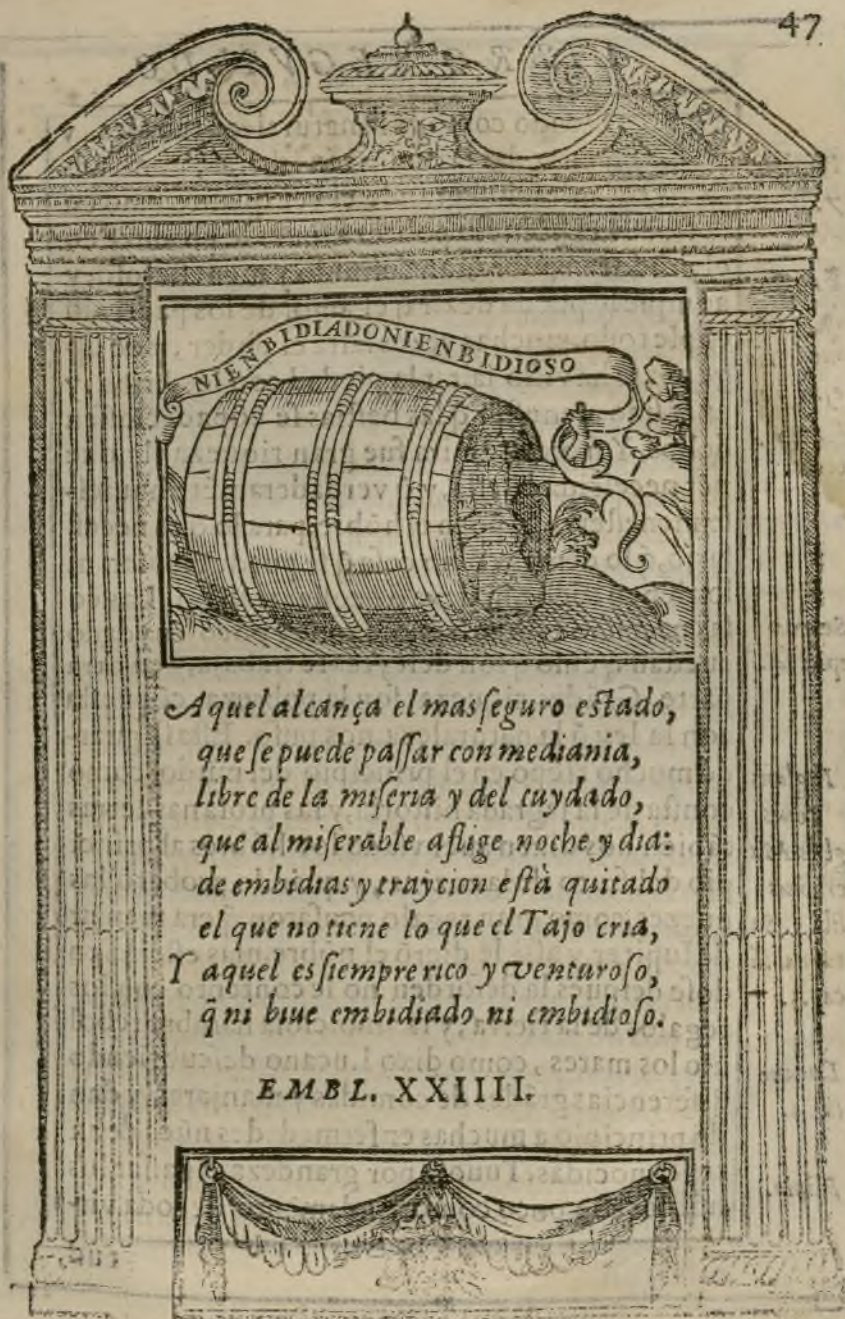 47
NIENBIDIADONIENBIDIOSO
Aquel alcança el mas ſeguro eſtado,
que ſe puede paſſar con mediania,
libre de la miſeria y del cuydado,
que al miſerable aflige noche y dia:
de embidias y traycion eſtà quitado
el que no tiene lo que el Tajo cria,
Y aquel es ſiempre rico y venturoſo,
q̃ ni biue embidiado ni embidioſo.
EMBL. XXIIII.